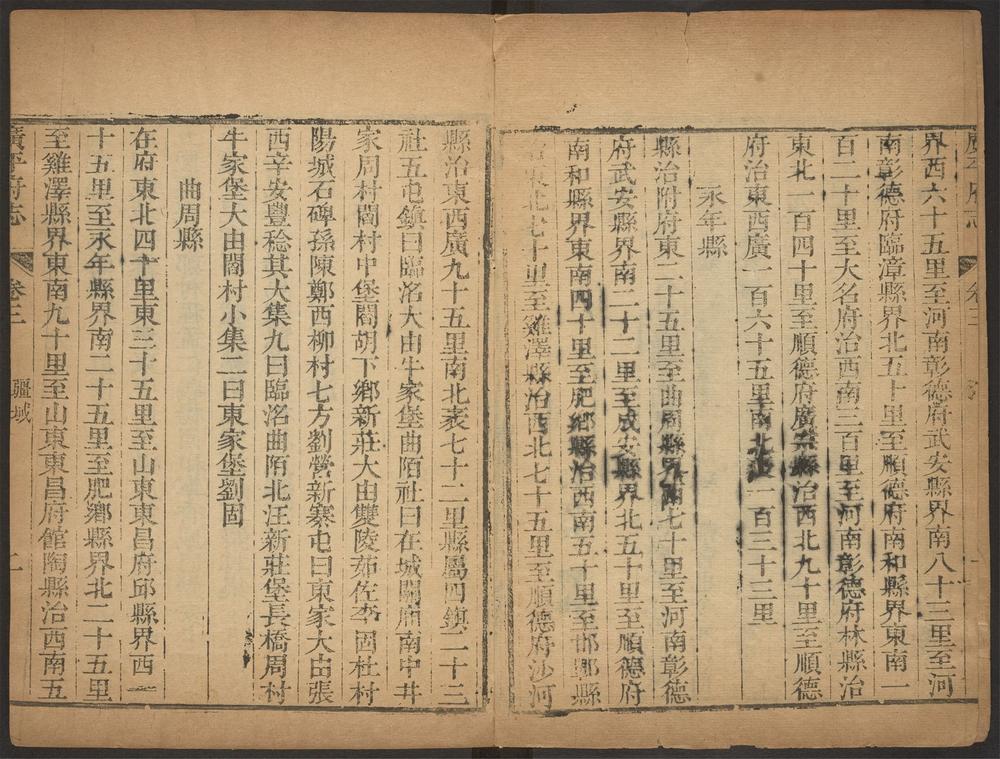 廣平府志 卷三
界西六十五里至河南彰德府武安縣界南八十三里至河
南彰德府臨漳縣界北五十里至順德府南和縣界東南一
百二十里至大名府治西南三百里至河南彰德府林縣治
東北一百四十里至順德府廣宗縣治西北九十里至順德
府治東西廣一百六十五里南北 一百三十三里
永年縣
縣治附府東二十五里至曲周縣界西七十里至河南彰德
府武安縣界南二十二里至成安縣界北五十里至順德府
南和縣界東南四十里至肥鄉縣治西南五十里至邯鄲縣
東北七十里至雞澤縣治西北七十五里至順德府沙河
縣治東西廣九十五里南北袤七十二里縣屬四鎮二十三
社五屯鎮曰臨洺大由牛家堡曲陌社曰在城關廂南中井
家周村閻村中堡閻胡下鄉新莊大由雙陵茹佐李固杜村
陽城石碑孫陳鄭西柳村七方劉營新寨屯曰東家大由張
西辛安豐稔其大集九曰臨洺曲陌北汪新莊堡長橋周村
牛家堡大由閻村小集二曰東家堡劉固
曲周縣
在府東北四十里東三十五里至山東東昌府邱縣界西二
十五里至永年縣界南二十五里至肥鄉縣界北二十五里
至雞澤縣界東南九十里至山東東昌府館陶縣治西南五
廣平府志 卷三 疆域 二